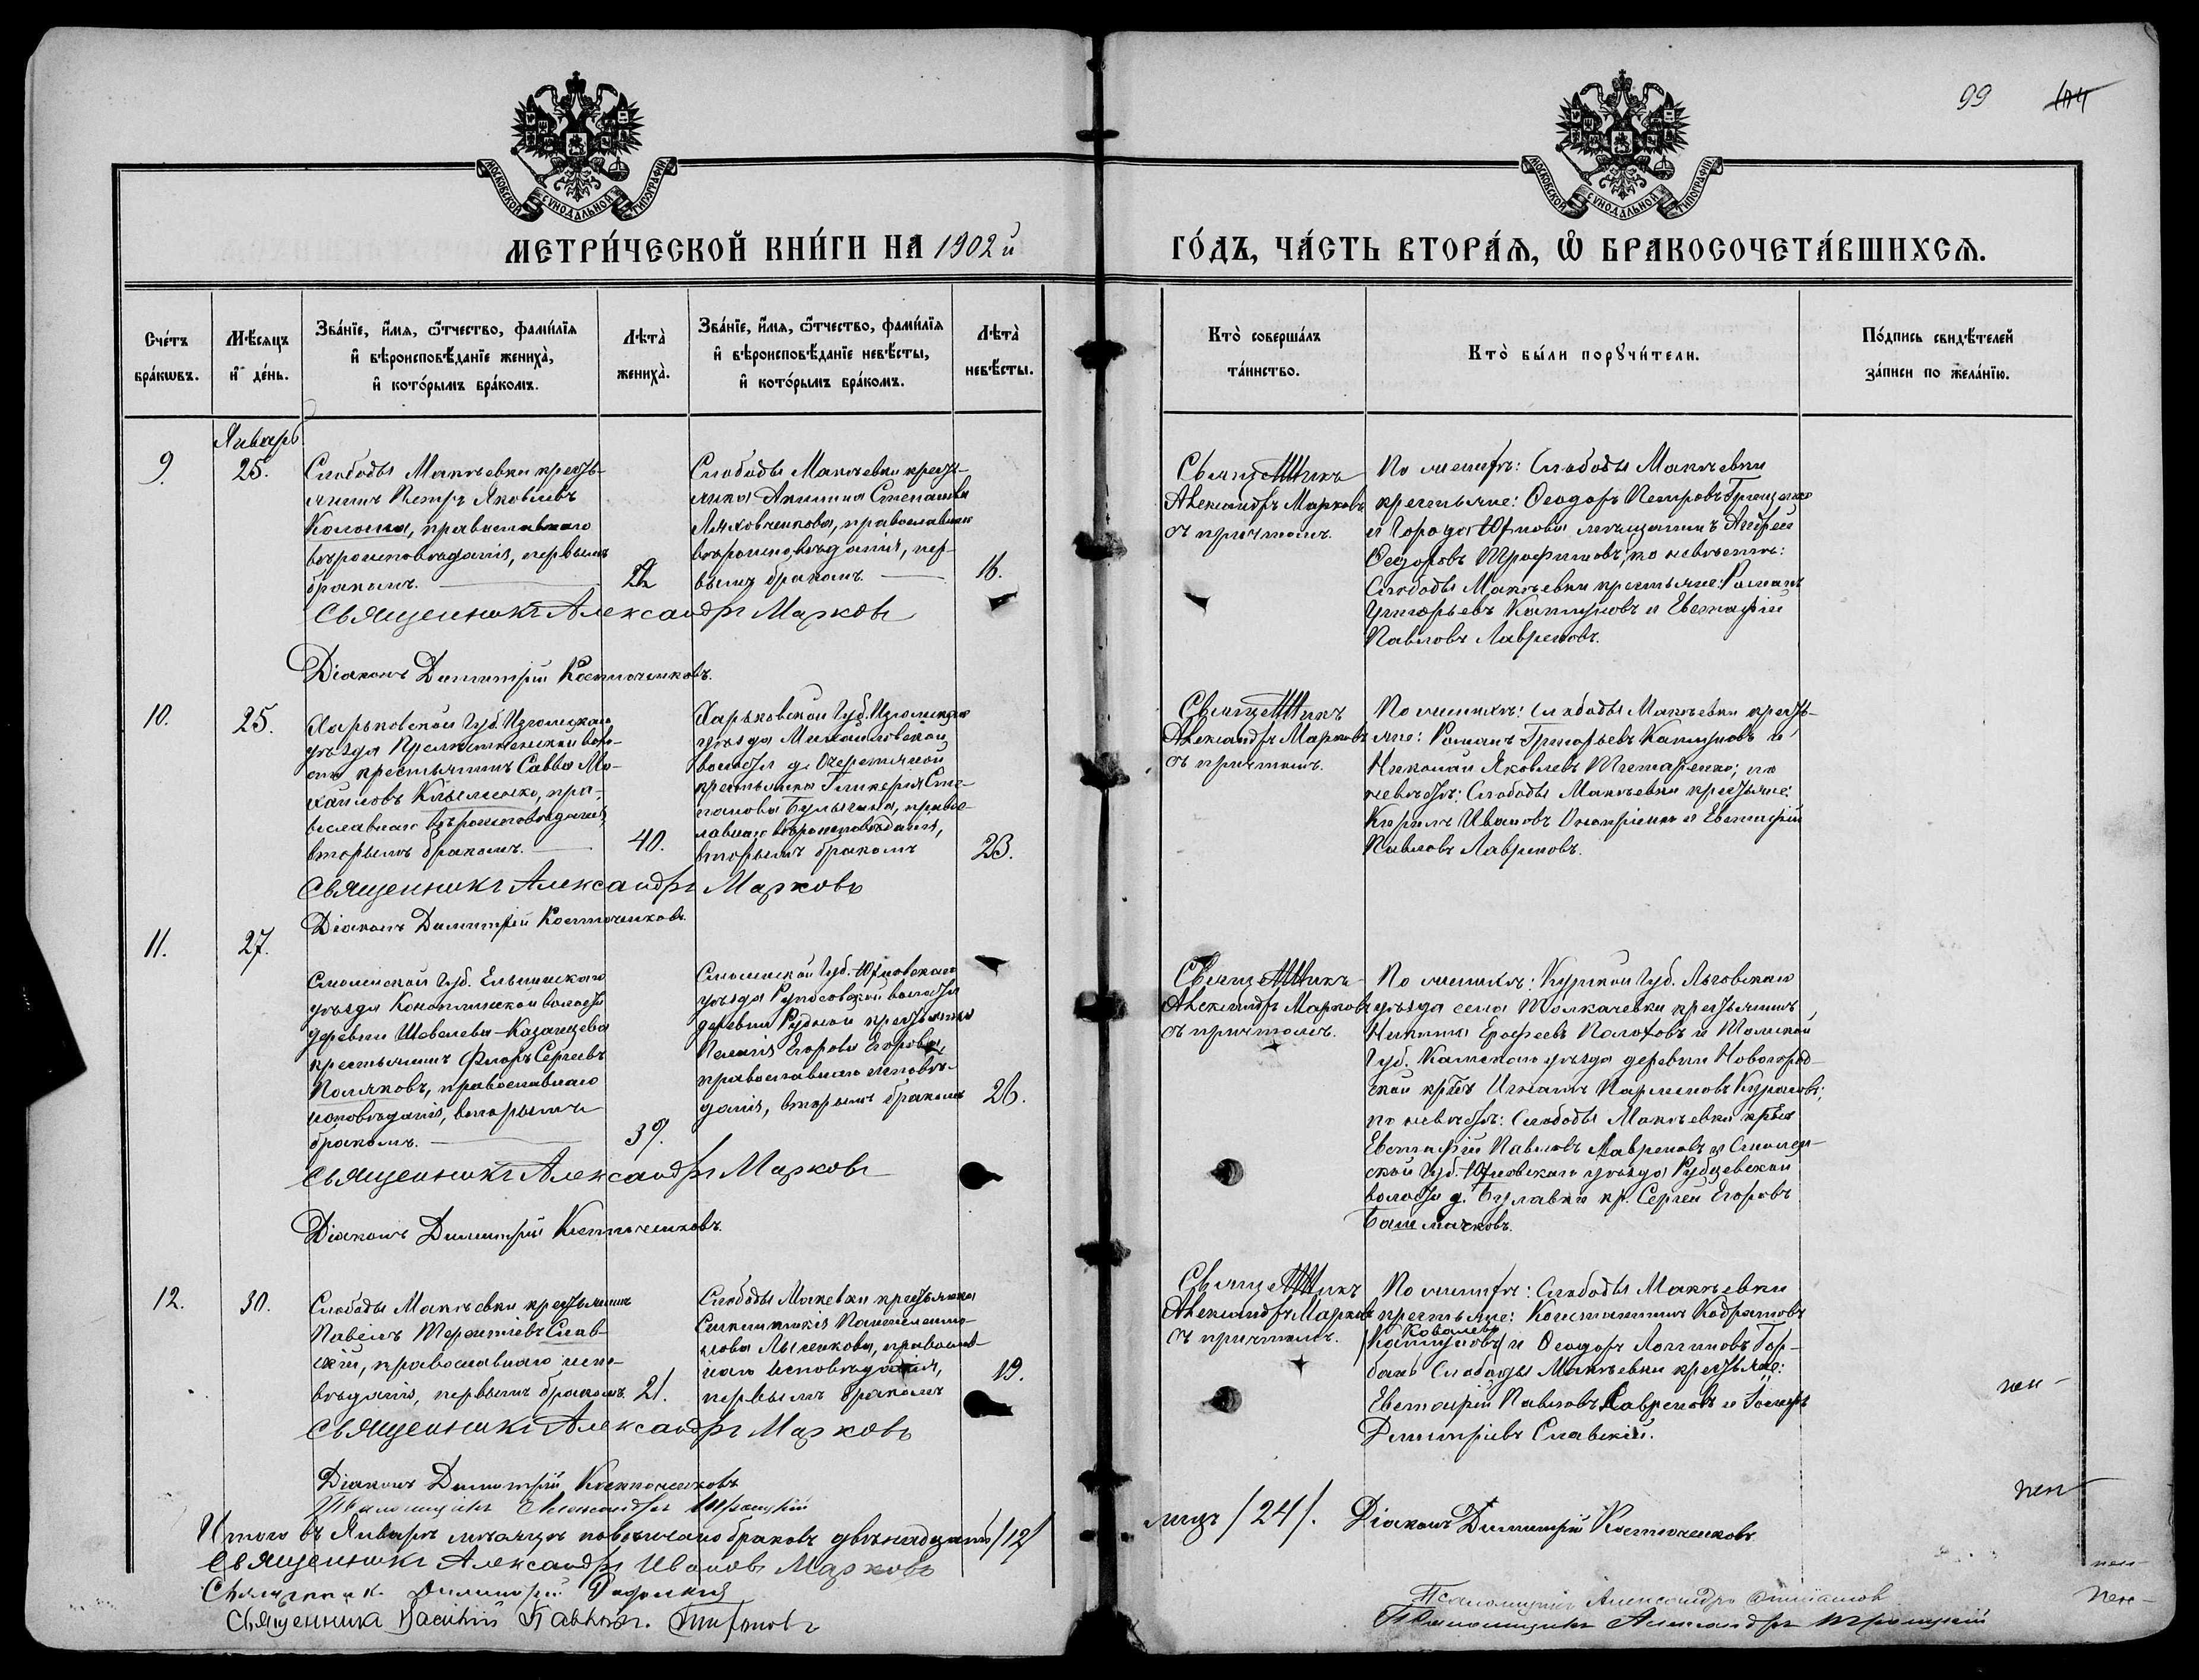 99
МОСКОВСКОЙ СУНОДАЛЬНОЙ ТИПОГРАФІИ
МОСКОВСКОЙ СУНОДАЛЬНОЙ ТИПОГРАФІИ
МЕТРИ́ЧЕСКОЙ КНИ́ГИ НА 1902 й
ГО́ДЪ, ЧА́СТЬ ВТОРА́Ѧ, Ѽ БРАКОСОЧЕТА́ВШИХСѦ.
Сче́тъ
бра́кѡвъ.
Мѣ́сяцъ
и҆ де́нь.
Зва́нїе, и҆́мѧ, ѻ҆́тчество, фами́лїѧ
и҆ вѣроисповѣ́данїе жениха̀,
и҆ кото́рымъ бра́комъ.
Лѣта̀
жениха̀.
Зва́нїе, и҆́мѧ, ѻ҆́тчество, фами́лїѧ
и҆ вѣроисповѣ́данїе невѣ́сты,
и҆ кото́рымъ бра́комъ.
Лѣта̀
невѣ́сты.
Кто̀ соверша́лъ
та́инство.
Кто̀ бы́ли порꙋчи́тели.
По́дпись свидѣ́телей
за́писи по жела́нїю.
Январь
9.
25.
Слободы Макѣевки кресть-
янинъ Петръ Яковлевъ
православнаго
вѣроисповѣданія, первымъ
бракомъ.
22
Слободы Макѣевки кресть-
янка Акилина Степанова
Ляховченкова, православнаго
вѣроисповѣданія, пер-
вымъ бракомъ
16.
Священникъ
Александръ Марковъ
съ причтомъ.
По женихѣ: Слободы Макѣевки
крестьяне: Ѳеодоръ Петровъ Грищенко
и города Юхнова мѣщанинъ Андрей
Ѳедоровъ Трофимовъ; по невѣстѣ:
Слободы Макѣевки крестьяне: Романъ
Григорьевъ Капируловъ и Евстафій
Павловъ Лавреновъ.
Священникъ Александръ Марковъ
Діаконъ Димитрій Костюченковъ.
10.
25.
Харьковской губ. Изюмскаго
уѣзда воло-
сти крестьянинъ Савва Ми-
хайловъ пра-
вославнаго вѣроисповѣданія,
вторымъ бракомъ.
40.
Харьковской губ. Изюмскаго
уѣзда Михайловской
волости д. Очеретяной
крестьянка Гликерія Сте-
панова Булыгина, право-
славнаго вѣроисповѣданія,
вторымъ бракомъ
23.
Священникъ
Александръ Марковъ
съ причтомъ.
По женихѣ: слободы Макѣевки кресть-
яне: Романъ Григорьевъ и
Николай Яковлевъ Титаренко; по
невѣстѣ: Слободы Макѣевки крестьяне:
Кирилъ Ивановъ Онопріенко и Евстафій
Павловъ Лавреновъ.
Священникъ Александръ Марковъ
Діаконъ Димитрій Костюченковъ.
11.
27.
Смоленской губ. Ельнинскаго
уѣзда волости
деревни Шевелева-Казанцева
крестьянинъ Флоръ Сергѣевъ
Поляковъ, православнаго
исповѣданія, вторымъ
бракомъ.
39.
Смоленской губ. Юхновскаго
уѣзда волости
деревни Рудной крестьянка
Пелагія Егорова Егорова,
православнаго исповѣ-
данія, вторымъ бракомъ
26.
Священникъ
Александръ Марковъ
съ причтомъ.
По женихѣ: Курской губ. Льговскаго
уѣзда села Толкачевки крестьянинъ
Никита Ерофеевъ Полоховъ и Томской
губ. Каинскаго уѣзда деревни Новогород-
ской кр. Игнатъ Парменовъ
по невѣстѣ: Слободы Макѣевки кр.
Евстафій Павловъ Лавреновъ и Смолен-
ской губ. Юхновскаго уѣзда Рубцевской
волости д. Булавки кр. Сергѣй Егоровъ
Башмачковъ.
Священникъ Александръ Марковъ
Діаконъ Димитрій Костюченковъ.
12.
30.
Слободы Макѣевки крестьянинъ
Павелъ Терентіевъ Слав-
скій, православнаго испо-
вѣданія, первымъ бракомъ.
21.
Слободы Макеевки крестьянка
Синклитикія Пантелеимо-
нова Лысенкова, православ-
наго исповѣданія,
первымъ бракомъ
19.
Священникъ
Александръ Марковъ
съ причтомъ.
По женихѣ: Слободы Макѣевки
крестьяне: Константинъ Кодратовъ
Ковалевъ
и Ѳеодоръ Логгиновъ Гор-
бань Слободы Макѣевки крестьяне:
Евстафій Павловъ Лавреновъ и Іосифъ
Димитріевъ Славскій.
Священникъ Александръ Марковъ
Діаконъ Димитрій Костюченковъ
Псаломщикъ Александръ Троицкій
Итого въ Январѣ мѣсяцѣ повѣнчано браковъ двѣнадцать /12/
лицъ /24/. Діаконъ Димитрій Костюченковъ
Священникъ Александръ Ивановъ Марковъ
Священник Димитрій
Священника Василій Павловъ.
Псаломщикъ Александръ
Псаломщикъ Александръ Троицкій